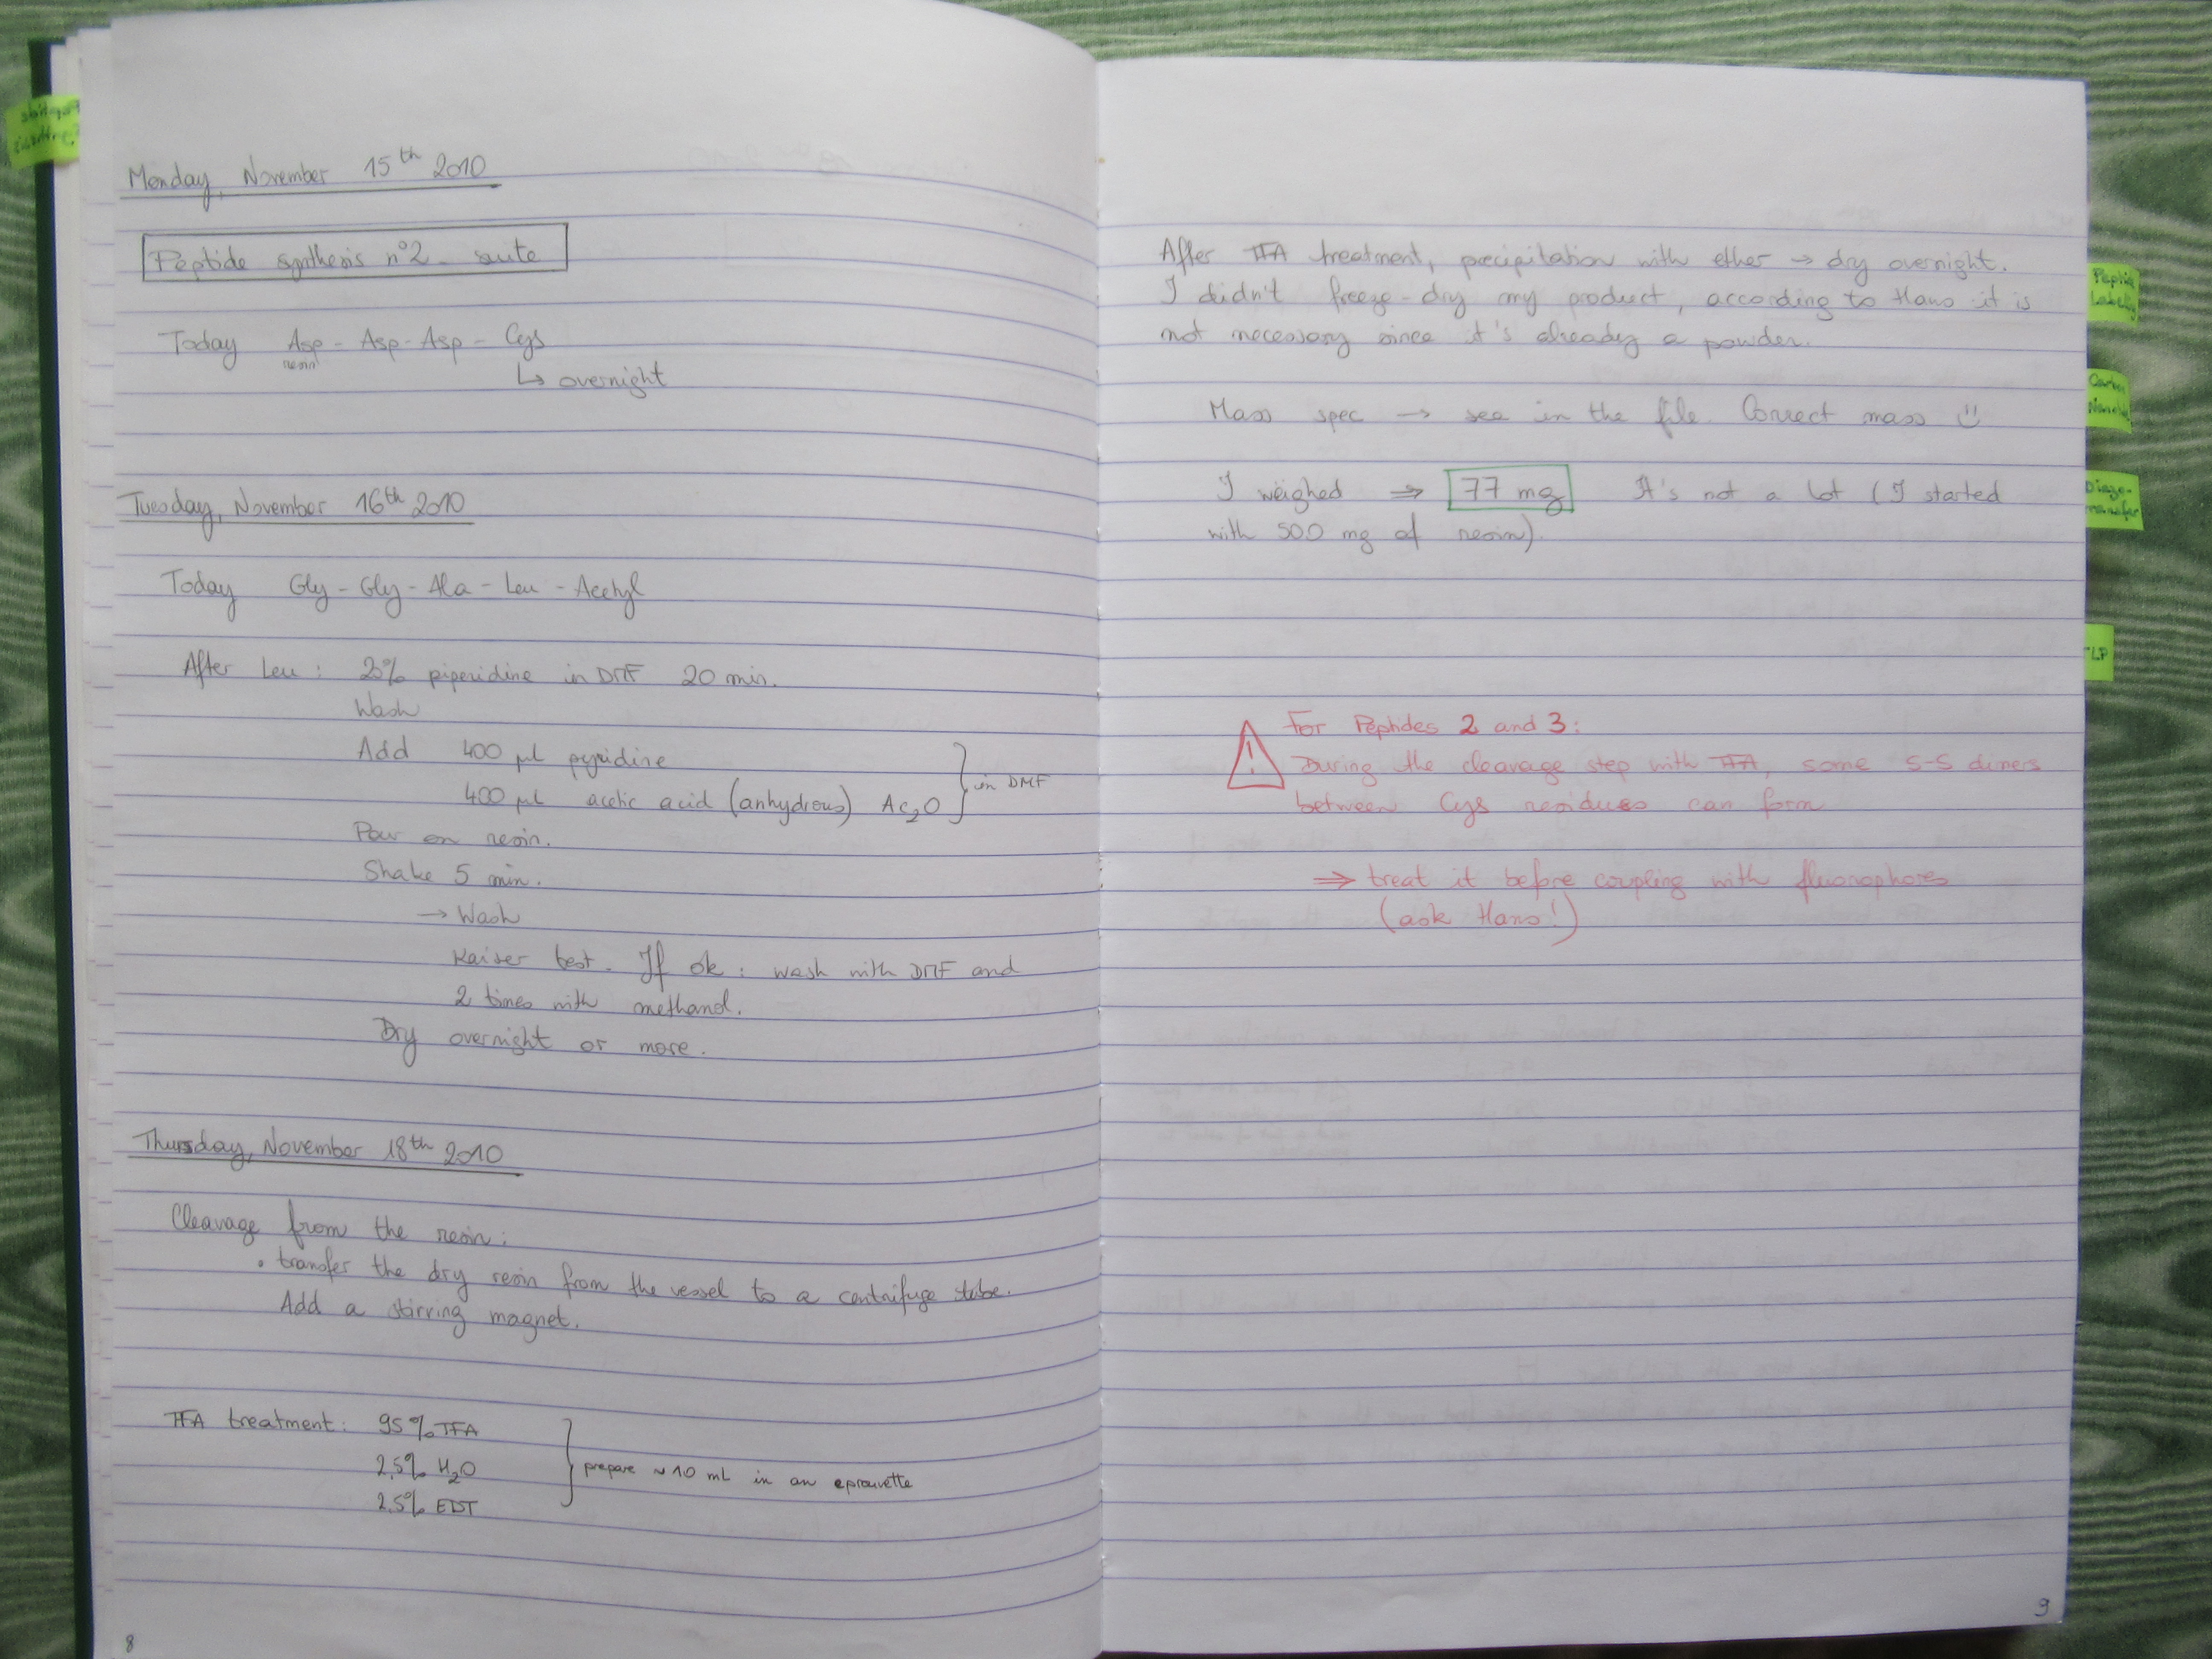 Monday, November 15th 2010
Peptide synthesis n°2 - suite
Today Asp - Asp - Asp - Cys
resin
↳ overnight
Tuesday, November 16th 2010
Today Gly - Gly - Ala - Leu - Acetyl
After Leu : 20% piperidine in DMF 20 min.
Wash
Add 400 µl pyridine
400 µl acetic acid (anhydrous) Ac2O
in DMF
Pour on resin.
Shake 5 min.
→ Wash
Kaiser test. If ok : wash with DMF and
2 times with methanol.
Dry overnight or more.
Thursday, November 18th 2010
Cleavage from the resin :
• transfer the dry resin from the vessel to a centrifuge tube.
Add a stirring magnet.
TFA treatment : 95% TFA
2,5% H2O
2,5% EDT
prepare ~10 mL in an eprouvette
8
After TFA treatment, precipitation with ether → dry overnight.
I didn't freeze-dry my product, according to Hans it is
not necessary since it's already a powder.
Mass spec → see in the file. Correct mass
I weighed ⇒ 77 mg It's not a lot (I started
with 500 mg of resin).
! For Peptides 2 and 3 :
During the cleavage step with TFA, some S-S dimers
between Cys residues can form
⇒ treat it before coupling with fluorophores
(ask Hans!)
9
Peptide
Labeling
Carbon
transfer
TLP